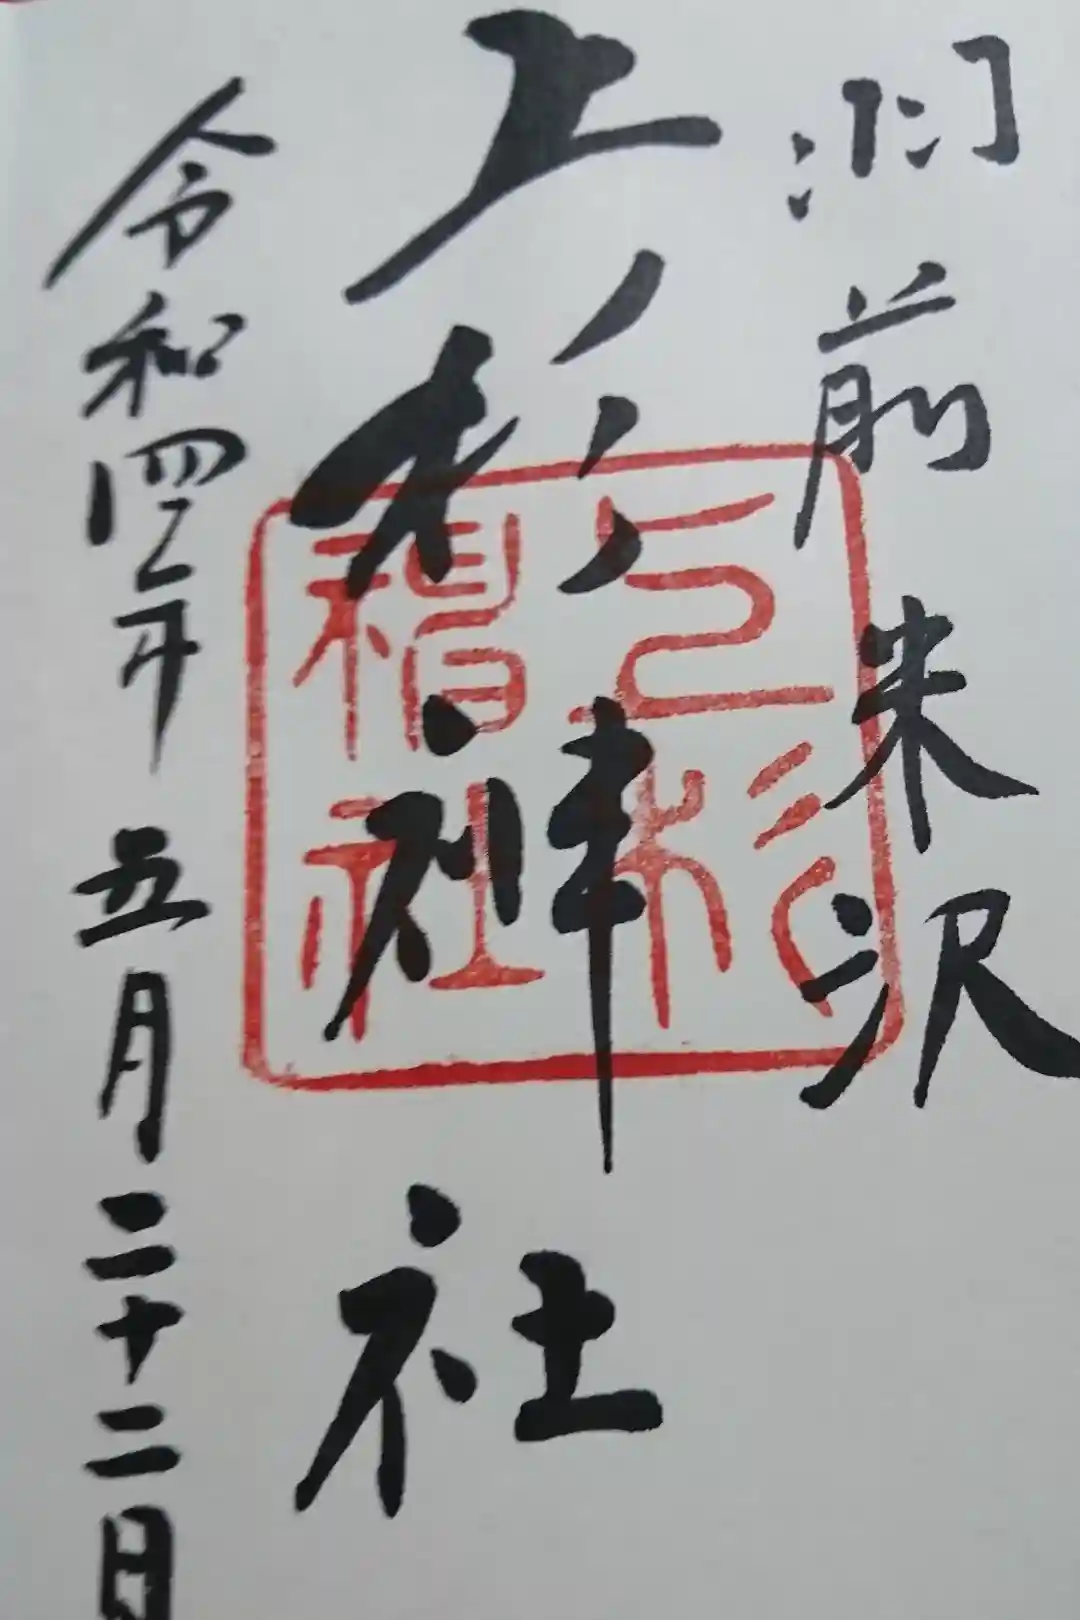 羽前米沢
上杉神社
上杉神社
令和四年五月二十二日